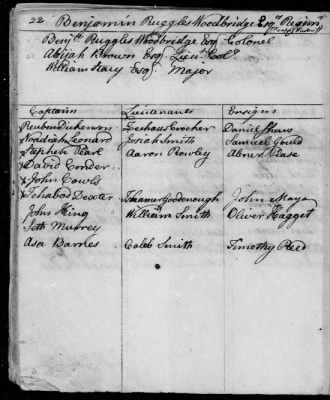 22 Benjamin Ruggles Woodbridge Esqr Regimt
Benjn Ruggles Woodbridge Esq Colonel
Abijah Brown Esq Lieut Colo
William Stacy Esq Major
Captains Lieutenants Ensigns
Reuben Dickenson Zechaus Crocker Daniel Shays
x Noadiah Leonard Josiah Smith Samuel Gould
x Stephen Pearl Aaron Rowley Abner Pease
x David Cowder
x John Cowls
x Ichabod Dexter Ithamer Goodenough John Mayo
John King William Smith Oliver Hagget
Seth Murrey
Asa Barnes Caleb Smith Timothy Reed